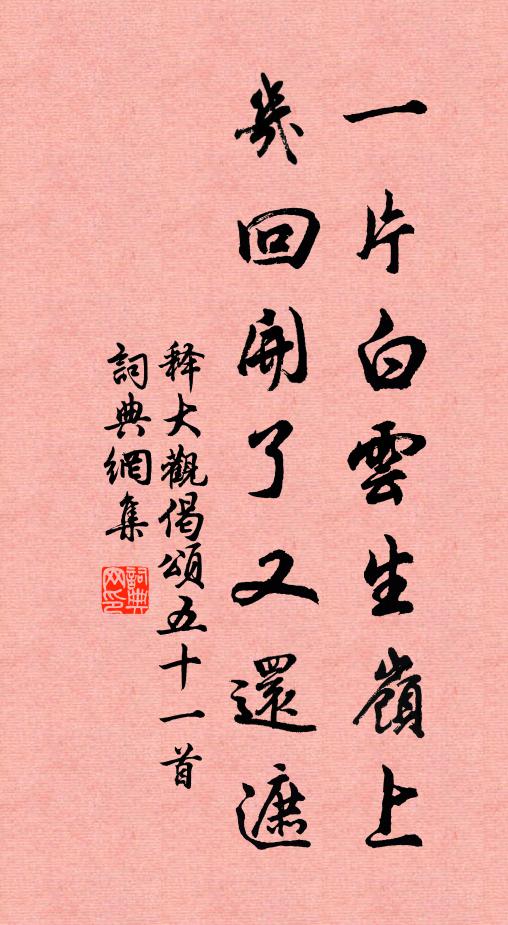 一片白雲生嶺上
幾回開了又還遮
释大觀偈頌五十一首
詞典網集
詞典网印